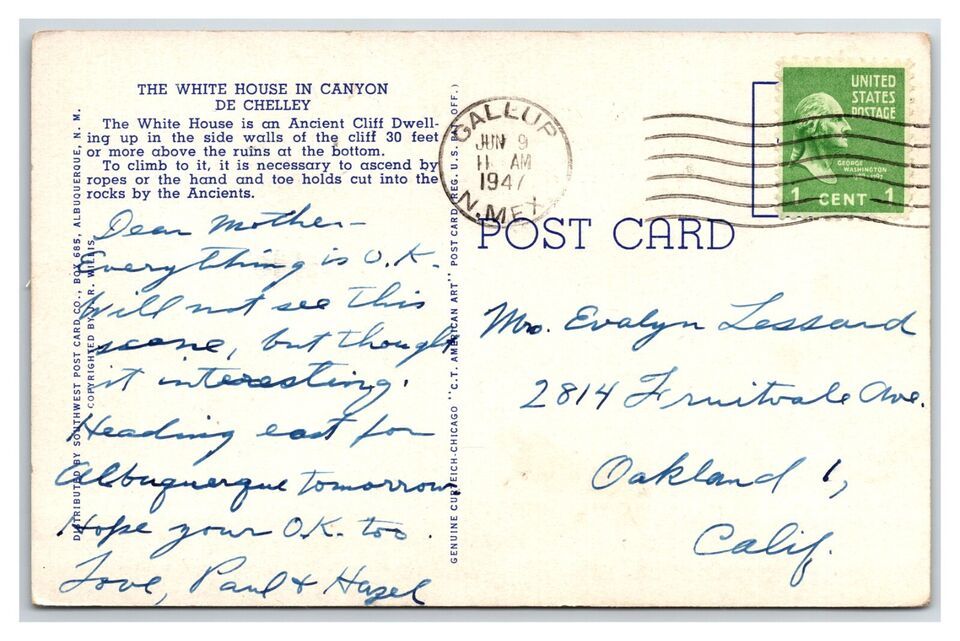 THE WHITE HOUSE IN CANYON
DE CHELLEY
The White House is an Ancient Cliff Dwell-
ing up in the side walls of the cliff 30 feet
or more above the ruins at the bottom.
To climb to it, it is necessary to ascend by
ropes or the hand and toe holds cut into the
rocks by the Ancients.
Dear Mother-
Everything is O.K.
Will not see this
scene, but thought
it interesting.
Heading east for
Albuquerque tomorrow.
Hope your O.K. too.
Love, Paul & Hazel
DISTRIBUTED BY SOUTHWEST POST CARD CO., BOX 685, ALBUQUERQUE, N. M.
COPYRIGHTED BY R. WILLIS
GENUINE CURTEICH-CHICAGO "C.T. AMERICAN ART" POST CARD (REG. U.S. OFF.)
GALLUP
JUN 9
11 AM
1947
N. MEX.
UNITED
STATES
POSTAGE
GEORGE
WASHINGTON
1 CENT 1
POST CARD
Mrs. Evalyn Lessard
2814 Fruitvale Ave.
Oakland 1,
Calif.